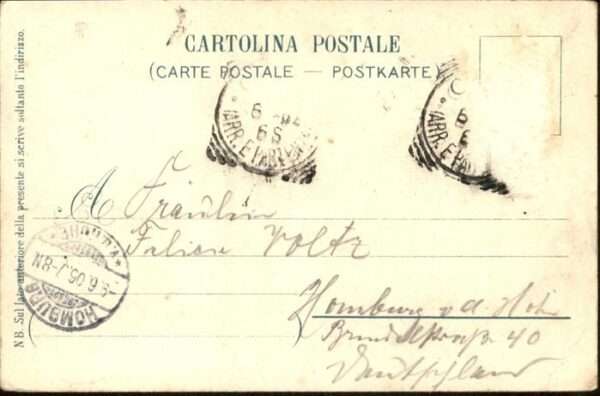 CARTOLINA POSTALE
(CARTE POSTALE — POSTKARTE)
N B. Sul lato anteriore della presente si scrive soltanto l'indirizzo.
6
6 S
(ARR. E PAR
6
(ARR. E PA
A Fräulein
Voltz
Homburg v. d. Höhe
40
Deutschland
HOMBURG
5.6.05.7-8N
HÖHE